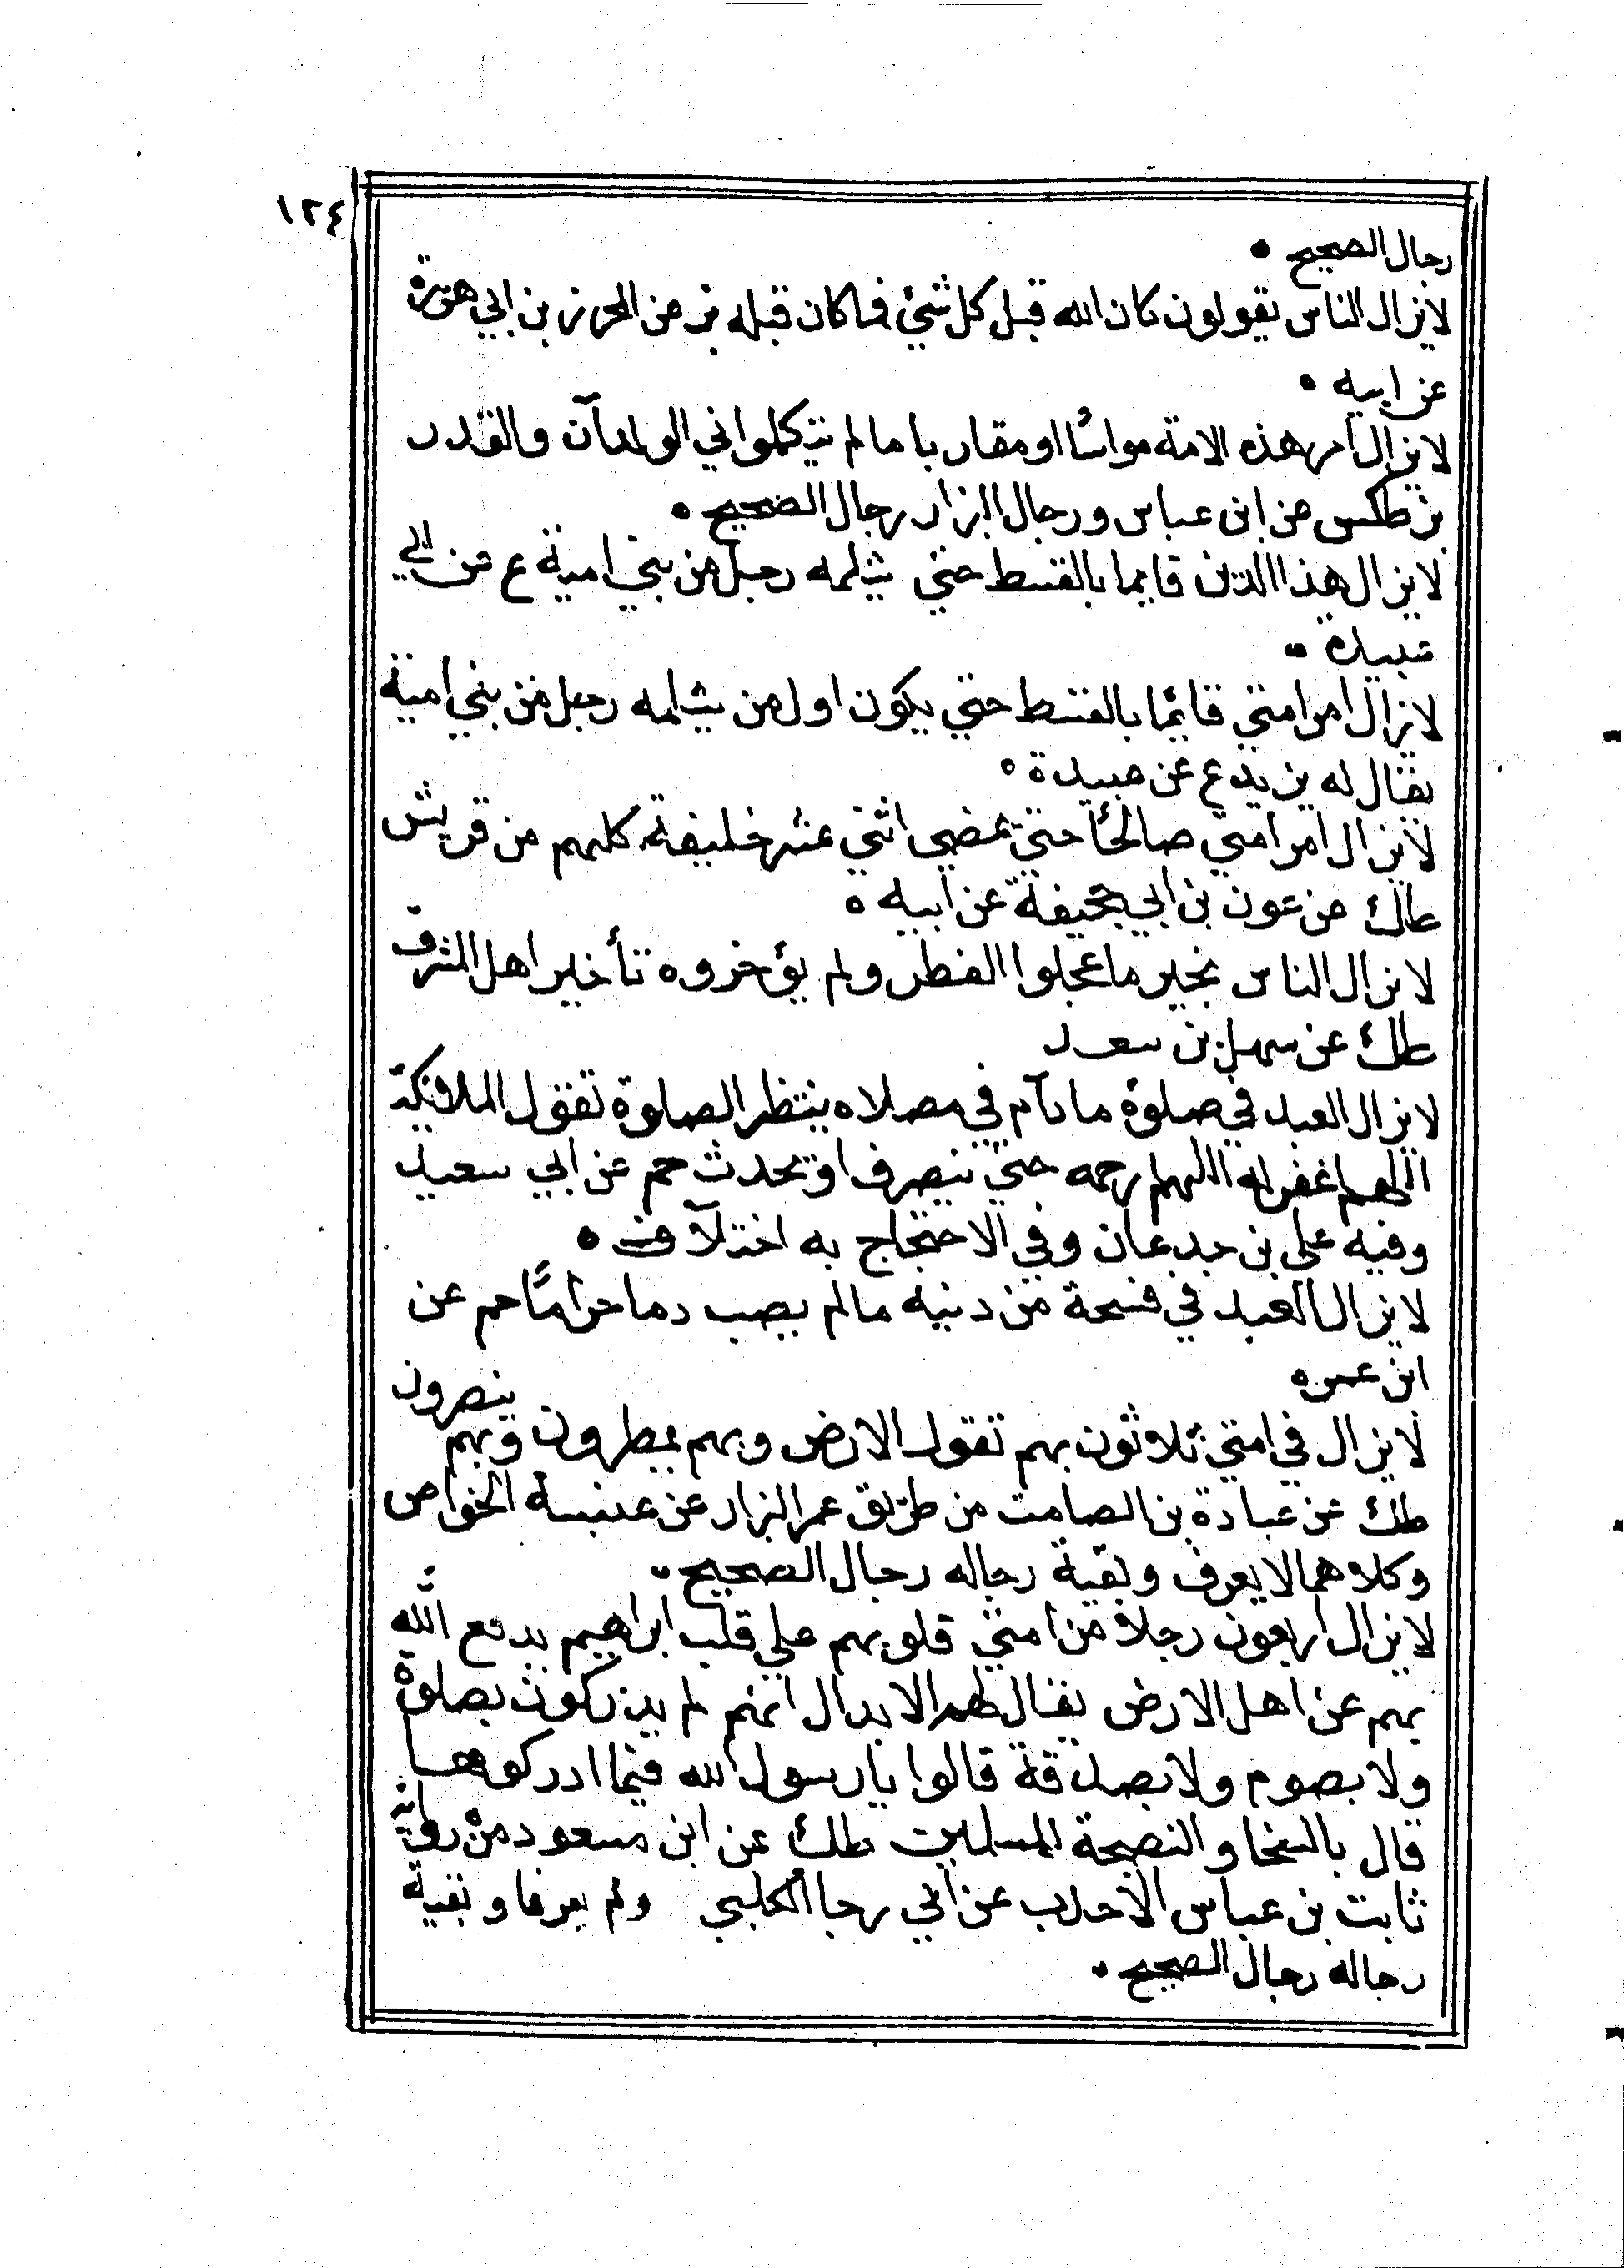 ١٢٤
رجال الصحيح ۰
لا يزال الناس يقولون كان الله قبل كل شئ فما كان قبله بز عن المحرز بن ابي هريرة
عن ابيه ۰
لا يزال امر هذه الامة مواسًا او مقاربا ما لم يتكلموا في الولدان والقدر
بز طكس عن ابن عباس ورجال البزار رجال الصحيح ۰
لا يزال هذا الدين قايما بالقسط حتي يثلمه رجل من بني امية ع عن ابي
عبيدة ۰
لا يزال امر امتي قائما بالقسط حتي يكون اول من يثلمه رجل من بني امية
يقال له يزيد ع عن عبيدة ۰
لا يزال امر امتي صالحًا حتي يمضي اثني عشر خليفة كلهم من قريش
طك عن عون بن ابي جحيفة عن ابيه ۰
لا يزال الناس بخير ما عجلوا الفطر ولم يؤخروه تأخير اهل المشرق
طك عن سهل بن سعد
لا يزال العبد في صلوة ما دآم في مصلاه ينتظر الصلوة تقول الملائكة
اللهم اغفر له اللهم ارحمه حتي ينصرف او يحدث حم عن ابي سعيد
وفيه علي بن جدعان وفي الاحتجاج به اختلاف ۰
لا يزال العبد في فسحة من دنيه ما لم يصب دما حرامًا حم عن
ابن عمر ۰
لا يزال في امتي ثلاثون بهم تقول الارض وبهم يمطرون وبهم ينصرون
طك عن عبادة بن الصامت من طريق عمر البزار عن عنبسة الخواص
وكلاهما لا يعرف وبقية رجاله رجال الصحيح ۰
لا يزال اربعون رجلا من امتي قلوبهم علي قلب ابراهيم يدفع الله
بهم عن اهل الارض يقال لهم الابدال انهم لم يدركوها بصلوة
ولا بصوم ولا بصدقة قالوا يا رسول الله فبما ادركوها
قال بالسخا والنصيحة للمسلمين طك عن ابن مسعود من رواية
ثابت بن عباس الاحدب عن ابي رجا الكلبي ولم يعرفا وبقية
رجاله رجال الصحيح ۰